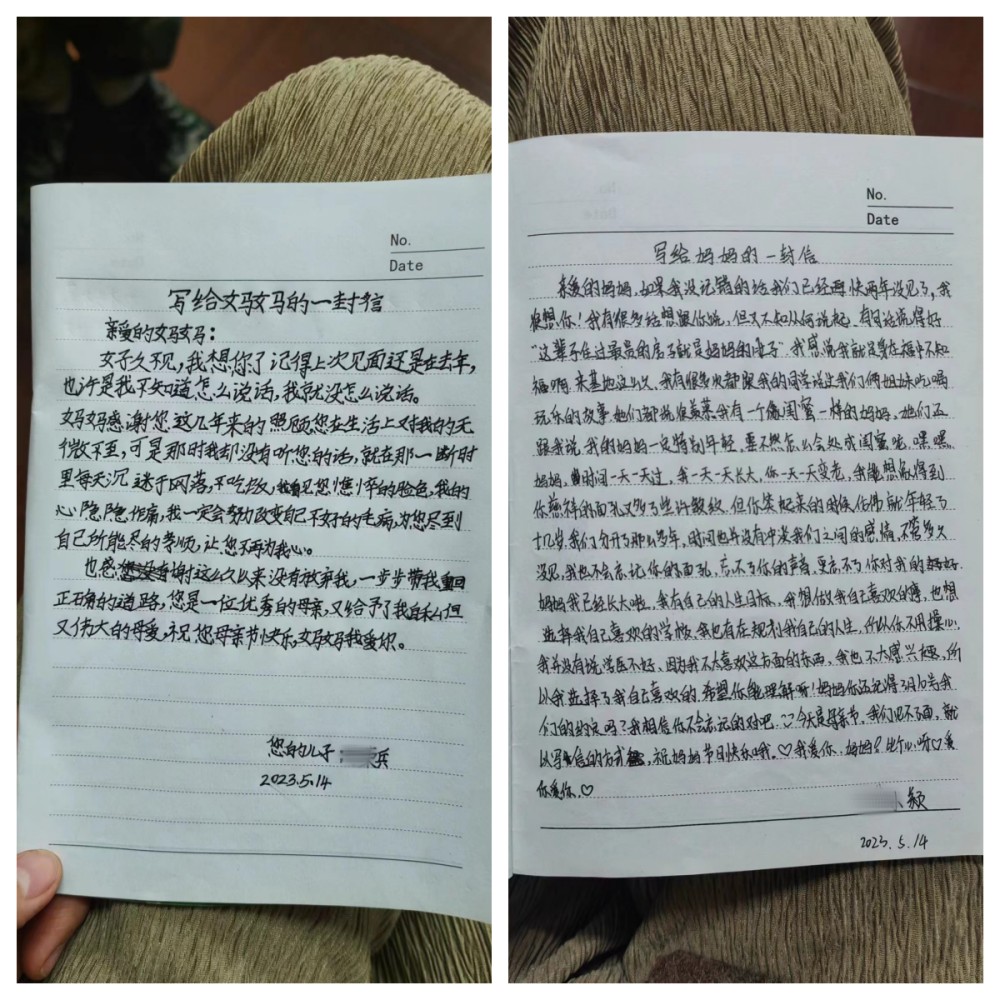 No.
Date
写给妈妈的一封信
亲爱的妈妈：
好久不见，我想您了记得上次见面还是在去年，
也许是我不知道怎么说话，我就没怎么说话。
妈妈感谢您这几年来的照顾您在生活上对我的无
微不至，可是那时我却没有听您的话，就在那一断时
里每天沉迷于网落，不吃饭，见您憔悴的脸色，我的
心隐隐作痛，我一定会努力改变自己不好的毛病，为您尽到
自己所能尽的孝顺，让您不再为我心。
也感谢这么久以来没有放弃我，一步步带我回
正确的道路，您是一位优秀的母亲，又给予了我自私但
又伟大的母爱，祝您母亲节快乐，妈妈我爱你。
您的儿子 兵
2023.5.14
No.
Date
写给妈妈的一封信
亲爱的妈妈，如果我没记错的话我们已经两快两年没见了，我
很想你！我有很多话想跟你说，但又不知从何说起，有句话说得好
“这辈子住过最贵的房子就是妈妈的肚子”我感觉我就是在福中不知
福啊，来基地这么久，我有很多次都跟我的同学说过我们俩姐妹吃喝
玩乐的故事，她们都说很羡慕我有一个像闺蜜一样的妈妈，她们还
跟我说，我的妈妈一定特别年轻，要不然怎么会处成闺蜜呢，嘿嘿，
妈妈，时间一天一天过，我一天一天长大，你一天一天变老，我能想象得到
你慈祥的面孔又多了些许皱纹，但你笑起来的时候仿佛就年轻了
十几岁，我们分开了那么多年，时间也并没有冲淡我们之间的感情，不管多久
没见，我也不会忘记你的面孔，忘不了你的声音，更忘不了你对我的好
妈妈我已经长大啦，我有自己的人生目标，我想做我自己喜欢的事，也想
选择我自己喜欢的学校，我也有在规划我自己的人生，所以你不用操心，
我并没有说学医不好，因为我不太喜欢这方面的东西，我也不大感兴趣，所
以我选择了我自己喜欢的，希望你能理解呀！妈妈你还记得3月10号我
们的约定吗？我相信你不会忘记的对吧，♡今天是母亲节，我们见不了面，就
以写信的方式，祝妈妈节日快乐哦。♡我爱你，妈妈！比个心呀♡爱
你爱你，♡
颖
2023.5.14